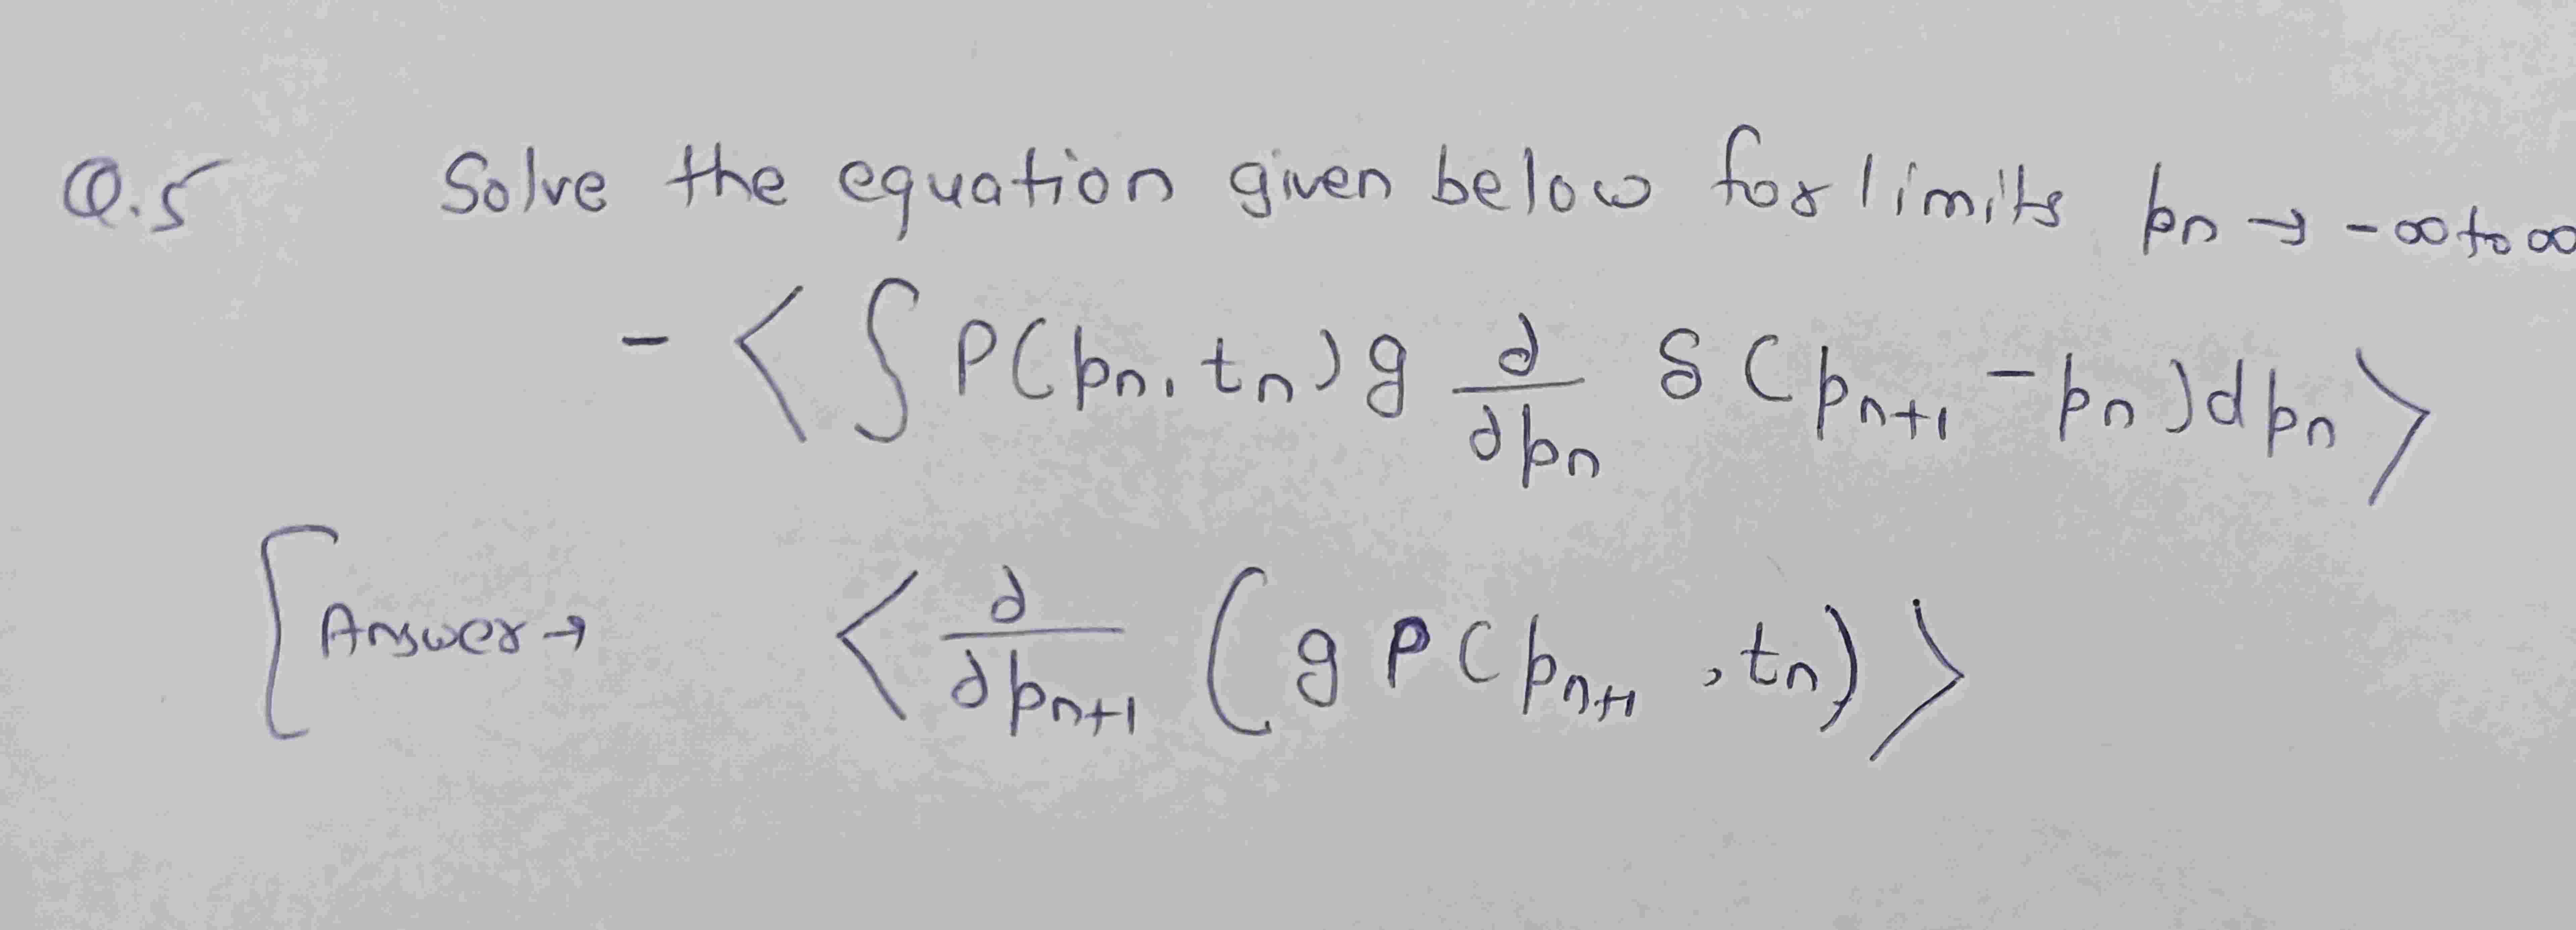 Q.5 Solve the equation given below for limits pn → -∞ to ∞
- < ∫ P(pn, tn) g ∂/∂pn δ(pn+1 - pn) dpn >
[Answer → < ∂/∂pn+1 (g P(pn+1, tn)) >